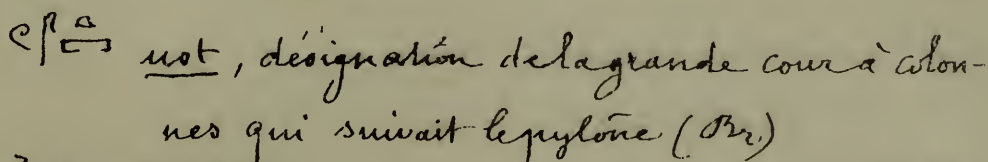 ust, désignation de la grande cour à colon-
nes qui suivait le pylône (Br.)